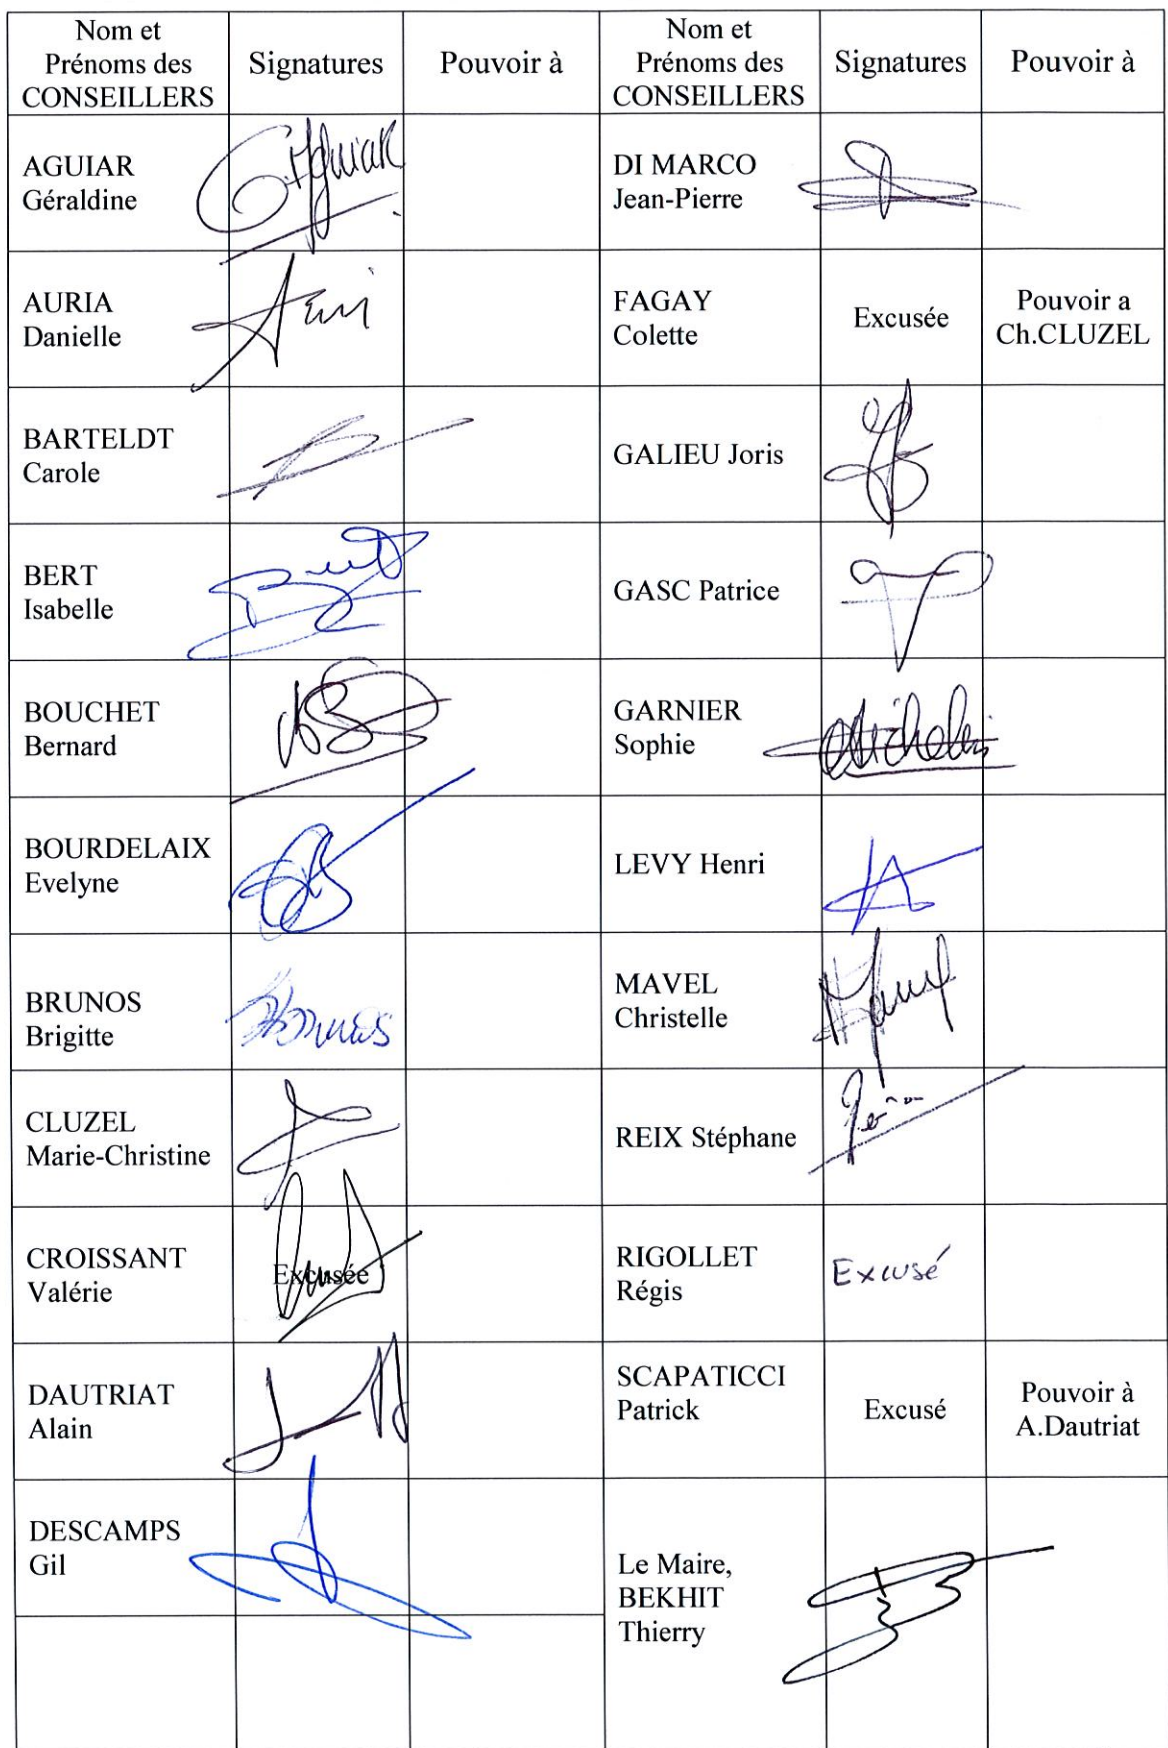 Nom et
Prénoms des
CONSEILLERS
Signatures
Pouvoir à
Nom et
Prénoms des
CONSEILLERS
Signatures
Pouvoir à
AGUIAR
Géraldine
DI MARCO
Jean-Pierre
AURIA
Danielle
FAGAY
Colette
Excusée
Pouvoir a
Ch.CLUZEL
BARTELDT
Carole
GALIEU Joris
BERT
Isabelle
GASC Patrice
BOUCHET
Bernard
GARNIER
Sophie
BOURDELAIX
Evelyne
LEVY Henri
BRUNOS
Brigitte
MAVEL
Christelle
CLUZEL
Marie-Christine
REIX Stéphane
CROISSANT
Valérie
Excusée
RIGOLLET
Régis
Excusé
DAUTRIAT
Alain
SCAPATICCI
Patrick
Excusé
Pouvoir à
A.Dautriat
DESCAMPS
Gil
Le Maire,
BEKHIT
Thierry